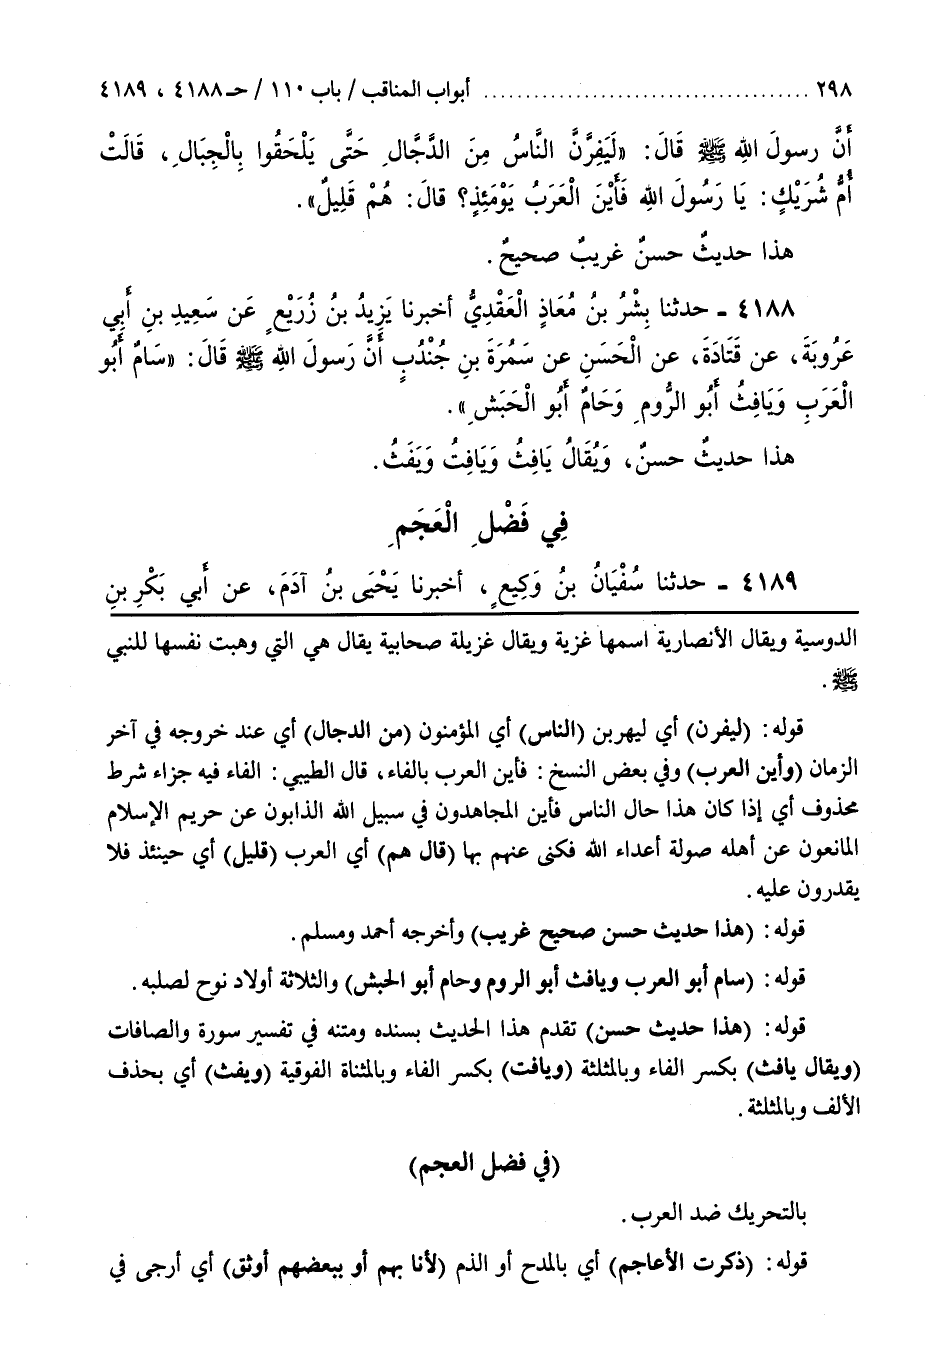 ٢٩٨ ....................................... أبواب المناقب / باب ١١٠ / حـ ٤١٨٨ ، ٤١٨٩
أَنَّ رسولَ اللهِ ﷺ قَالَ: «لَيَفِرَّنَّ النَّاسُ مِنَ الدَّجَّالِ حَتَّى يَلْحَقُوا بِالْجِبَالِ، قَالَتْ
أُمُّ شُرَيْكٍ: يَا رَسُولَ اللهِ فَأَيْنَ الْعَرَبُ يَوْمَئِذٍ؟ قالَ: هُمْ قَلِيلٌ».
هذا حديثٌ حسنٌ غريبٌ صحيحٌ.
٤١٨٨ - حدثنا بِشْرُ بنُ مُعَاذٍ الْعَقْدِيُّ أخبرنا يَزِيدُ بنُ زُرَيْعٍ عَن سَعِيدِ بنِ أَبي
عَرُوبَةَ، عن قَتَادَةَ، عن الْحَسَنِ عن سَمُرَةَ بنِ جُنْدُبٍ أَنَّ رَسولَ اللهِ ﷺ قَالَ: «سَامٌ أَبُو
الْعَرَبِ وَيَافِثُ أَبُو الرُّومِ وَحَامٌ أَبُو الْحَبَشِ».
هذا حديثٌ حسنٌ، وَيُقَالُ يَافِثُ وَيَافِتُ وَيَفَثُ.
فِي فَضْلِ الْعَجَمِ
٤١٨٩ - حدثنا سُفْيَانُ بنُ وَكِيعٍ، أخبرنا يَحْيَى بنُ آدَمَ، عن أَبي بَكْرِ بنِ
الدوسية ويقال الأنصارية اسمها غزية ويقال غزيلة صحابية يقال هي التي وهبت نفسها للنبي
ﷺ.
قوله: (ليفرن) أي ليهربن (الناس) أي المؤمنون (من الدجال) أي عند خروجه في آخر
الزمان (وأين العرب) وفي بعض النسخ: فأين العرب بالفاء، قال الطيبي: الفاء فيه جزاء شرط
محذوف أي إذا كان هذا حال الناس فأين المجاهدون في سبيل الله الذابون عن حريم الإسلام
المانعون عن أهله صولة أعداء الله فكنى عنهم بها (قال هم) أي العرب (قليل) أي حينئذ فلا
يقدرون عليه.
قوله: (هذا حديث حسن صحيح غريب) وأخرجه أحمد ومسلم.
قوله: (سام أبو العرب ويافث أبو الروم وحام أبو الحبش) والثلاثة أولاد نوح لصلبه.
قوله: (هذا حديث حسن) تقدم هذا الحديث بسنده ومتنه في تفسير سورة والصافات
(ويقال يافث) بكسر الفاء وبالمثلثة (ويافت) بكسر الفاء وبالمثناة الفوقية (ويفث) أي بحذف
الألف وبالمثلثة.
(في فضل العجم)
بالتحريك ضد العرب.
قوله: (ذكرت الأعاجم) أي بالمدح أو الذم (لأنا بهم أو ببعضهم أوثق) أي أرجى في